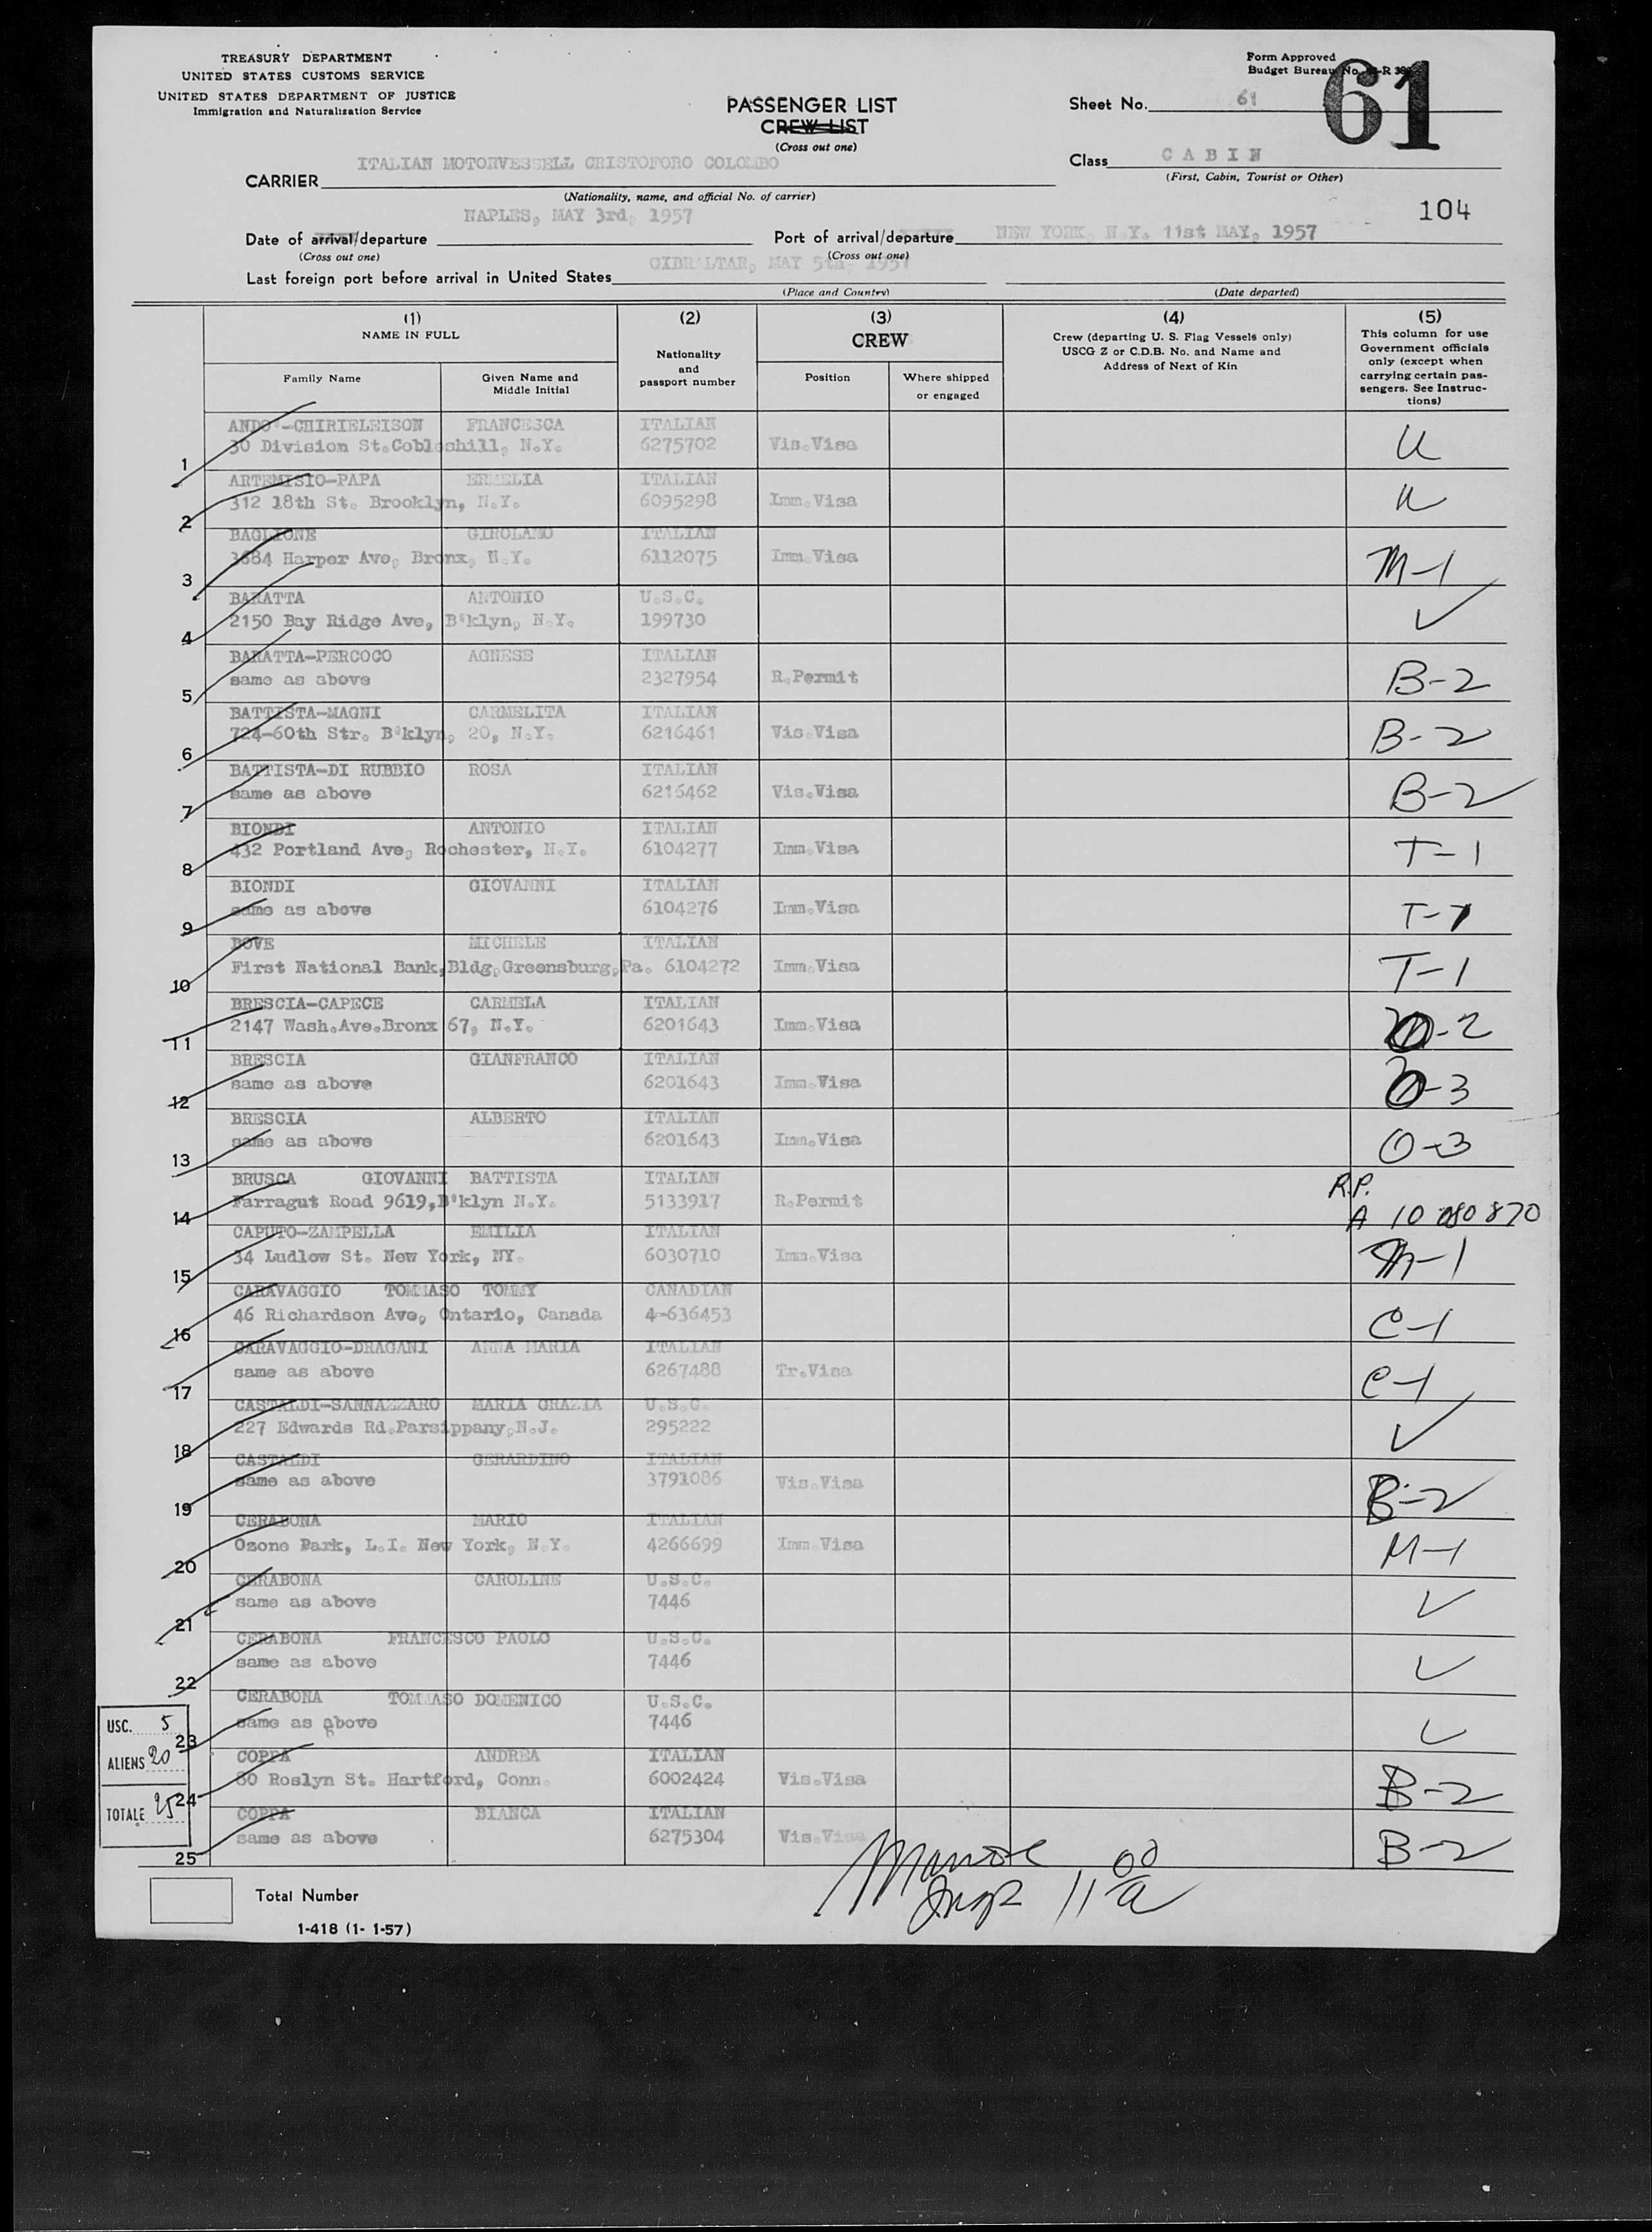 TREASURY DEPARTMENT
UNITED STATES CUSTOMS SERVICE
UNITED STATES DEPARTMENT OF JUSTICE
Immigration and Naturalization Service
PASSENGER LIST
CREW LIST
(Cross out one)
Form Approved
Budget Bureau No.
61
Sheet No. 61
Class CABIN
(First, Cabin, Tourist or Other)
CARRIER ITALIAN MOTORVESSELL CRISTOFORO COLOMBO
(Nationality, name, and official No. of carrier)
104
Date of arrival/departure NAPLES, MAY 3rd, 1957
(Cross out one)
Port of arrival/departure NEW YORK, N.Y. 11st MAY, 1957
(Cross out one)
Last foreign port before arrival in United States GIBRALTAR, MAY 5th, 1957
(Place and Country)
(Date departed)
(1) NAME IN FULL
Family Name
Given Name and Middle Initial
(2) Nationality and passport number
(3) CREW
Position
Where shipped or engaged
(4) Crew (departing U. S. Flag Vessels only) USCG Z or C.D.B. No. and Name and Address of Next of Kin
(5) This column for use Government officials only (except when carrying certain passengers. See Instructions)
ANDO'-CHIRIELEISON FRANCESCA ITALIAN
1 30 Division St.Cobleshill, N.Y. 6275702 Vis.Visa U
ARTEMISIO-PAPA ERMELIA ITALIAN
2 312 18th St. Brooklyn, N.Y. 6095298 Imm.Visa U
BAGLIONE GIROLAMO ITALIAN
3 3684 Harper Ave, Bronx, N.Y. 6112075 Imm.Visa M-1
BARATTA ANTONIO U.S.C.
4 2150 Bay Ridge Ave, B'klyn, N.Y. 199730 ✓
BARATTA-PERCOCO AGNESE ITALIAN
5 same as above 2327954 R.Permit B-2
BATTISTA-MAGNI CARMELITA ITALIAN
6 724-60th Str. B'klyn, 20, N.Y. 6216461 Vis.Visa B-2
BATTISTA-DI RUBBIO ROSA ITALIAN
7 same as above 6216462 Vis.Visa B-2
BIONDI ANTONIO ITALIAN
8 432 Portland Ave, Rochester, N.Y. 6104277 Imm.Visa T-1
BIONDI GIOVANNI ITALIAN
9 same as above 6104276 Imm.Visa T-1
BOVE MICHELE ITALIAN
10 First National Bank,Bldg,Greensburg,Pa. 6104272 Imm.Visa T-1
BRESCIA-CAPECE CARMELA ITALIAN
11 2147 Wash.Ave.Bronx 67, N.Y. 6201643 Imm.Visa O-2
BRESCIA GIANFRANCO ITALIAN
12 same as above 6201643 Imm.Visa O-3
BRESCIA ALBERTO ITALIAN
13 same as above 6201643 Imm.Visa O-3
BRUSCA GIOVANNI BATTISTA ITALIAN R.P.
14 Farragut Road 9619,B'klyn N.Y. 5133917 R.Permit A 10 080 870
CAPUTO-ZAMPELLA EMILIA ITALIAN
15 34 Ludlow St. New York, NY. 6030710 Imm.Visa M-1
CARAVAGGIO TOMMASO TOMMY CANADIAN
16 46 Richardson Ave, Ontario, Canada 4-636453 C-1
CARAVAGGIO-DRAGANI ANNA MARIA ITALIAN
17 same as above 6267488 Tr.Visa C-1
CASTALDI-SANNAZZARO MARIA GRAZIA U.S.C.
18 227 Edwards Rd.Parsippany,N.J. 295222 ✓
CASTALDI GERARDINO ITALIAN
19 same as above 3791086 Vis.Visa B-2
CERABONA MARIO ITALIAN
20 Ozone Park, L.I. New York, N.Y. 4266699 Imm.Visa M-1
CERABONA CAROLINE U.S.C.
21 same as above 7446 ✓
CERABONA FRANCESCO PAOLO U.S.C.
22 same as above 7446 ✓
CERABONA TOMMASO DOMENICO U.S.C.
23 same as above 7446 ✓
COPPA ANDREA ITALIAN
24 80 Roslyn St. Hartford, Conn. 6002424 Vis.Visa B-2
COPPA BIANCA ITALIAN
25 same as above 6275304 Vis.Visa B-2
USC. 5
ALIENS 20
TOTALE 25
11 00 a
Total Number
1-418 (1- 1-57)